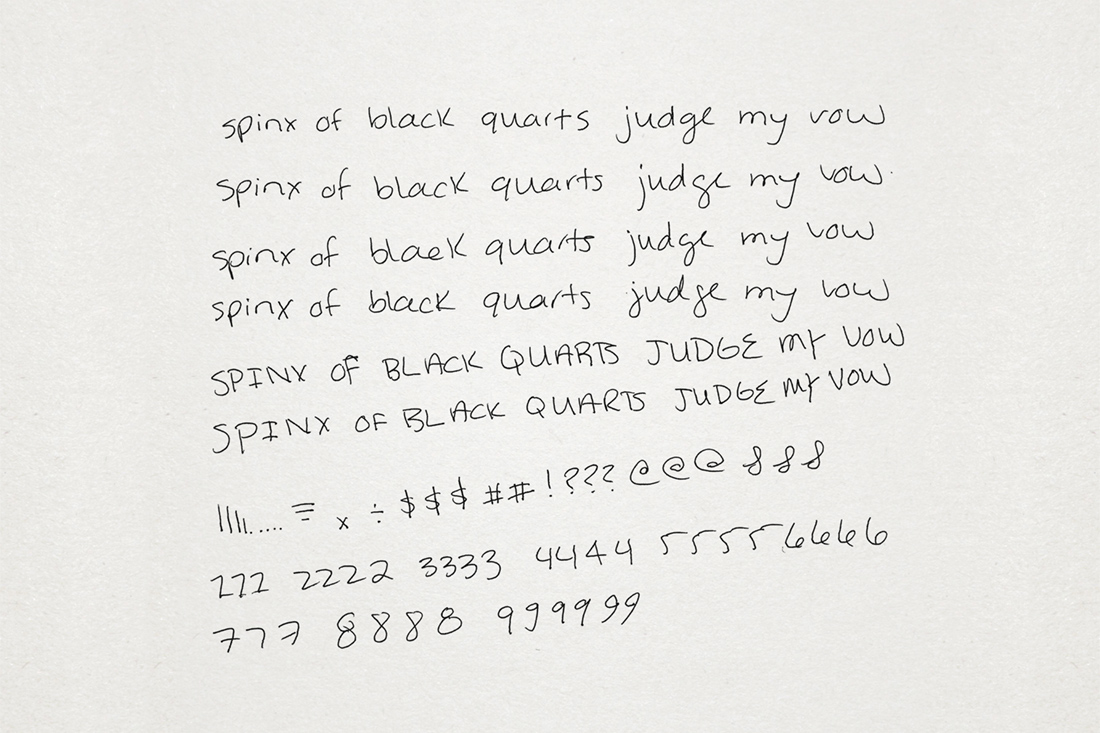 spinx of black quarts judge my vow
spinx of black quarts judge my vow.
spinx of black quarts judge my vow
spinx of black quarts judge my vow
SPINX OF BLACK QUARTS JUDGE MY VOW
SPINX OF BLACK QUARTS JUDGE MY VOW
||||..... = x ÷ $$$ ## ! ??? @@@ &&&
111 2222 3333 4444 5555 6666
777 8888 999999